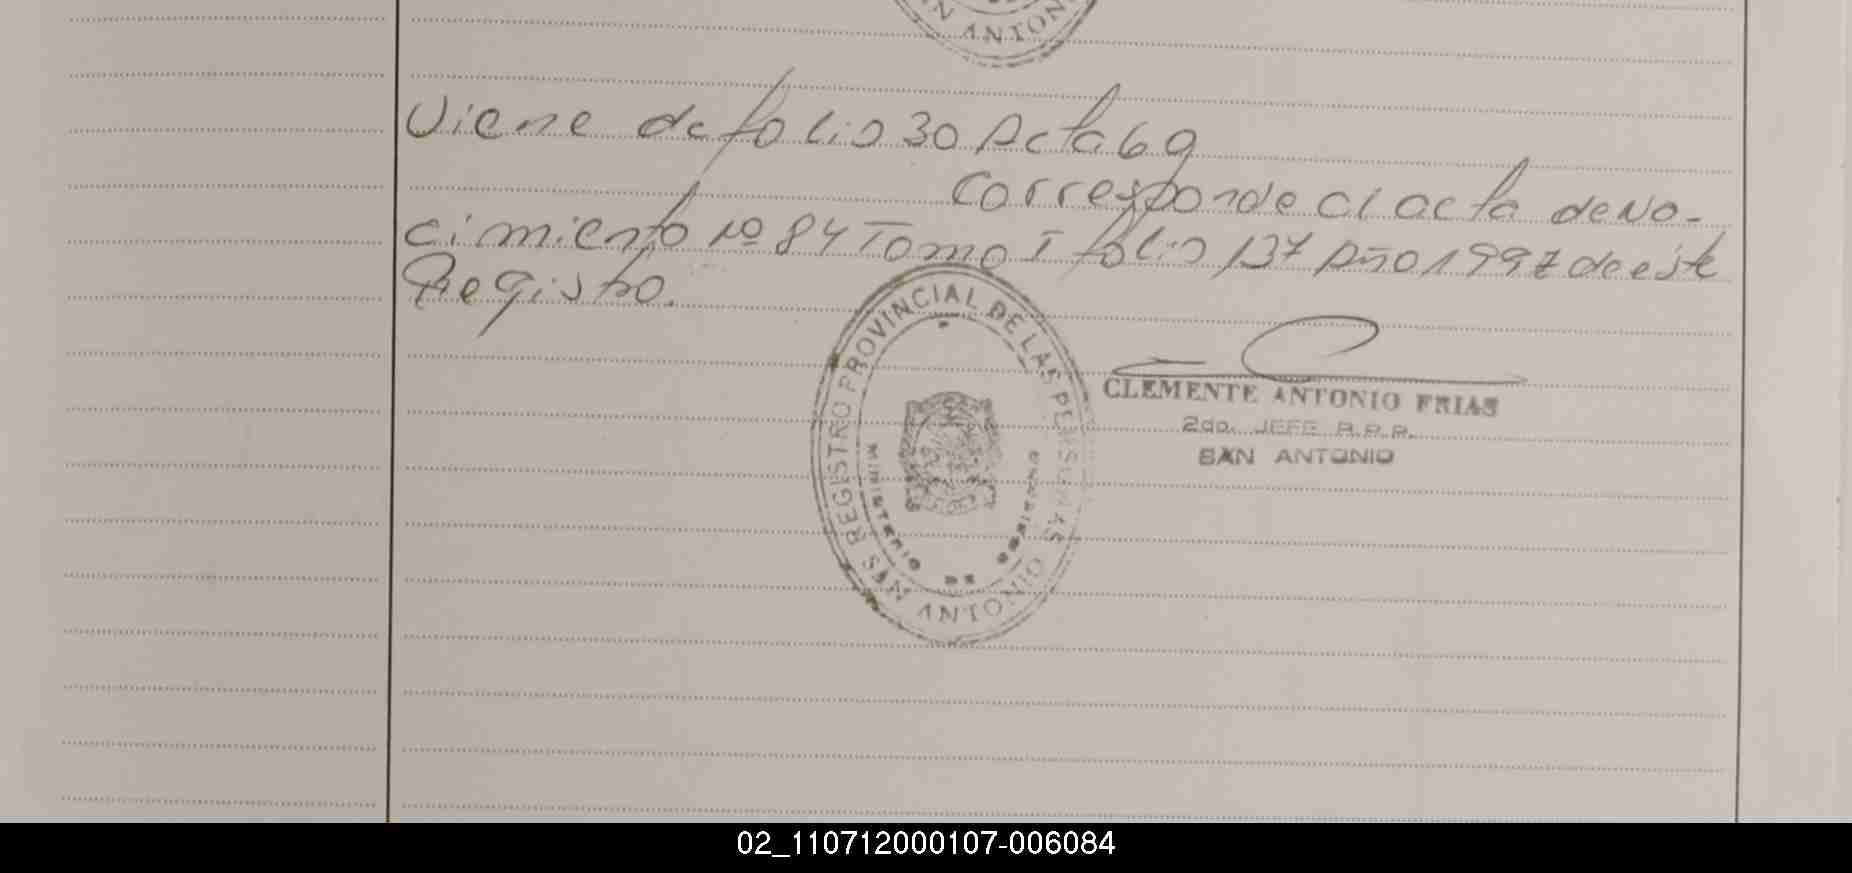 SAN ANTONIO
Viene de folio 30 Acta 69
Corresponde al acta de Na-
cimiento nº 84 Tomo I folio 137 Año 1997 de este
Registro.
REGISTRO PROVINCIAL DE LAS PERSONAS
MINISTERIO DE GOBIERNO
SAN ANTONIO
CLEMENTE ANTONIO FRIAS
2do. JEFE R.P.P.
SAN ANTONIO
02_110712000107-006084